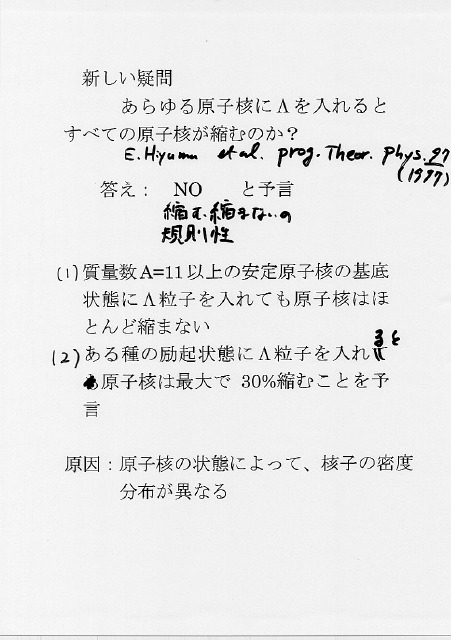 新しい疑問
あらゆる原子核にΛを入れると
すべての原子核が縮むのか？
E. Hiyama et al. prog. Theor. phys. 97
(1997)
答え： NO と予言
縮む、縮まないの
規則性
(1) 質量数A=11以上の安定原子核の基底
状態にΛ粒子を入れても原子核はほ
とんど縮まない
(2) ある種の励起状態にΛ粒子を入れると
原子核は最大で 30%縮むことを予
言
原因：原子核の状態によって、核子の密度
分布が異なる